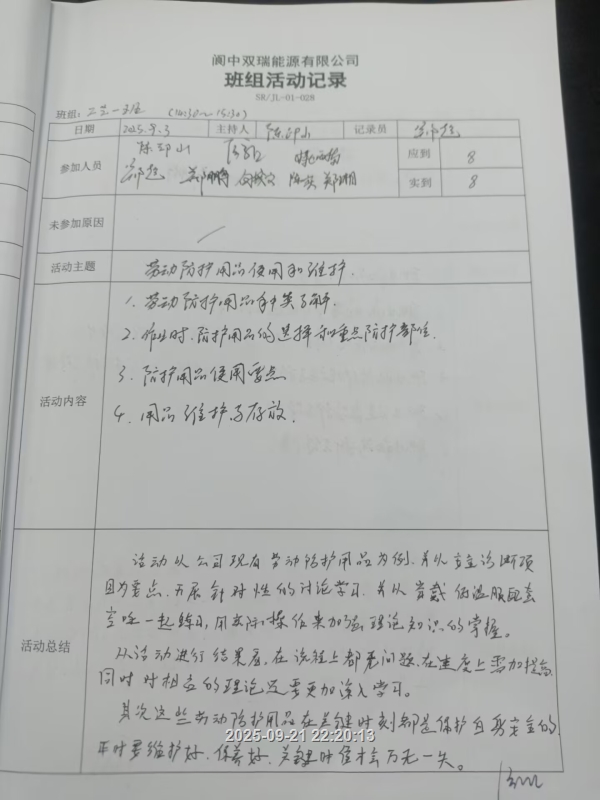 阆中双瑞能源有限公司
班组活动记录
SR/JL-01-028
班组: 工艺一班 (14:30~15:30)
日期 2025.9.3 主持人 陈 山 记录员
参加人员 陈 山 应到 8
郑 实到 8
未参加原因
活动主题 劳动防护用品使用和维护.
活动内容
1. 劳动防护用品种类了解.
2. 作业时、防护用品的选择和重点防护部位.
3. 防护用品使用要点
4. 用品维护与存放.
活动总结
活动从公司现有劳动防护用品为例.并从 诊断项
目为要点.开展针对性的讨论学习.并从背戴低温服
一起练习.用实际操作来加强理论知识的掌握。
从活动进行结果看.在流程上都无问题.在速度上需加提高
同时对相应的理论还要更加深入学习。
其次这些劳动防护用品在关键时刻都是保护自身安全的.
平时要维护好、保养好.关键时候才会万无一失。
2025-09-21 22:20:13